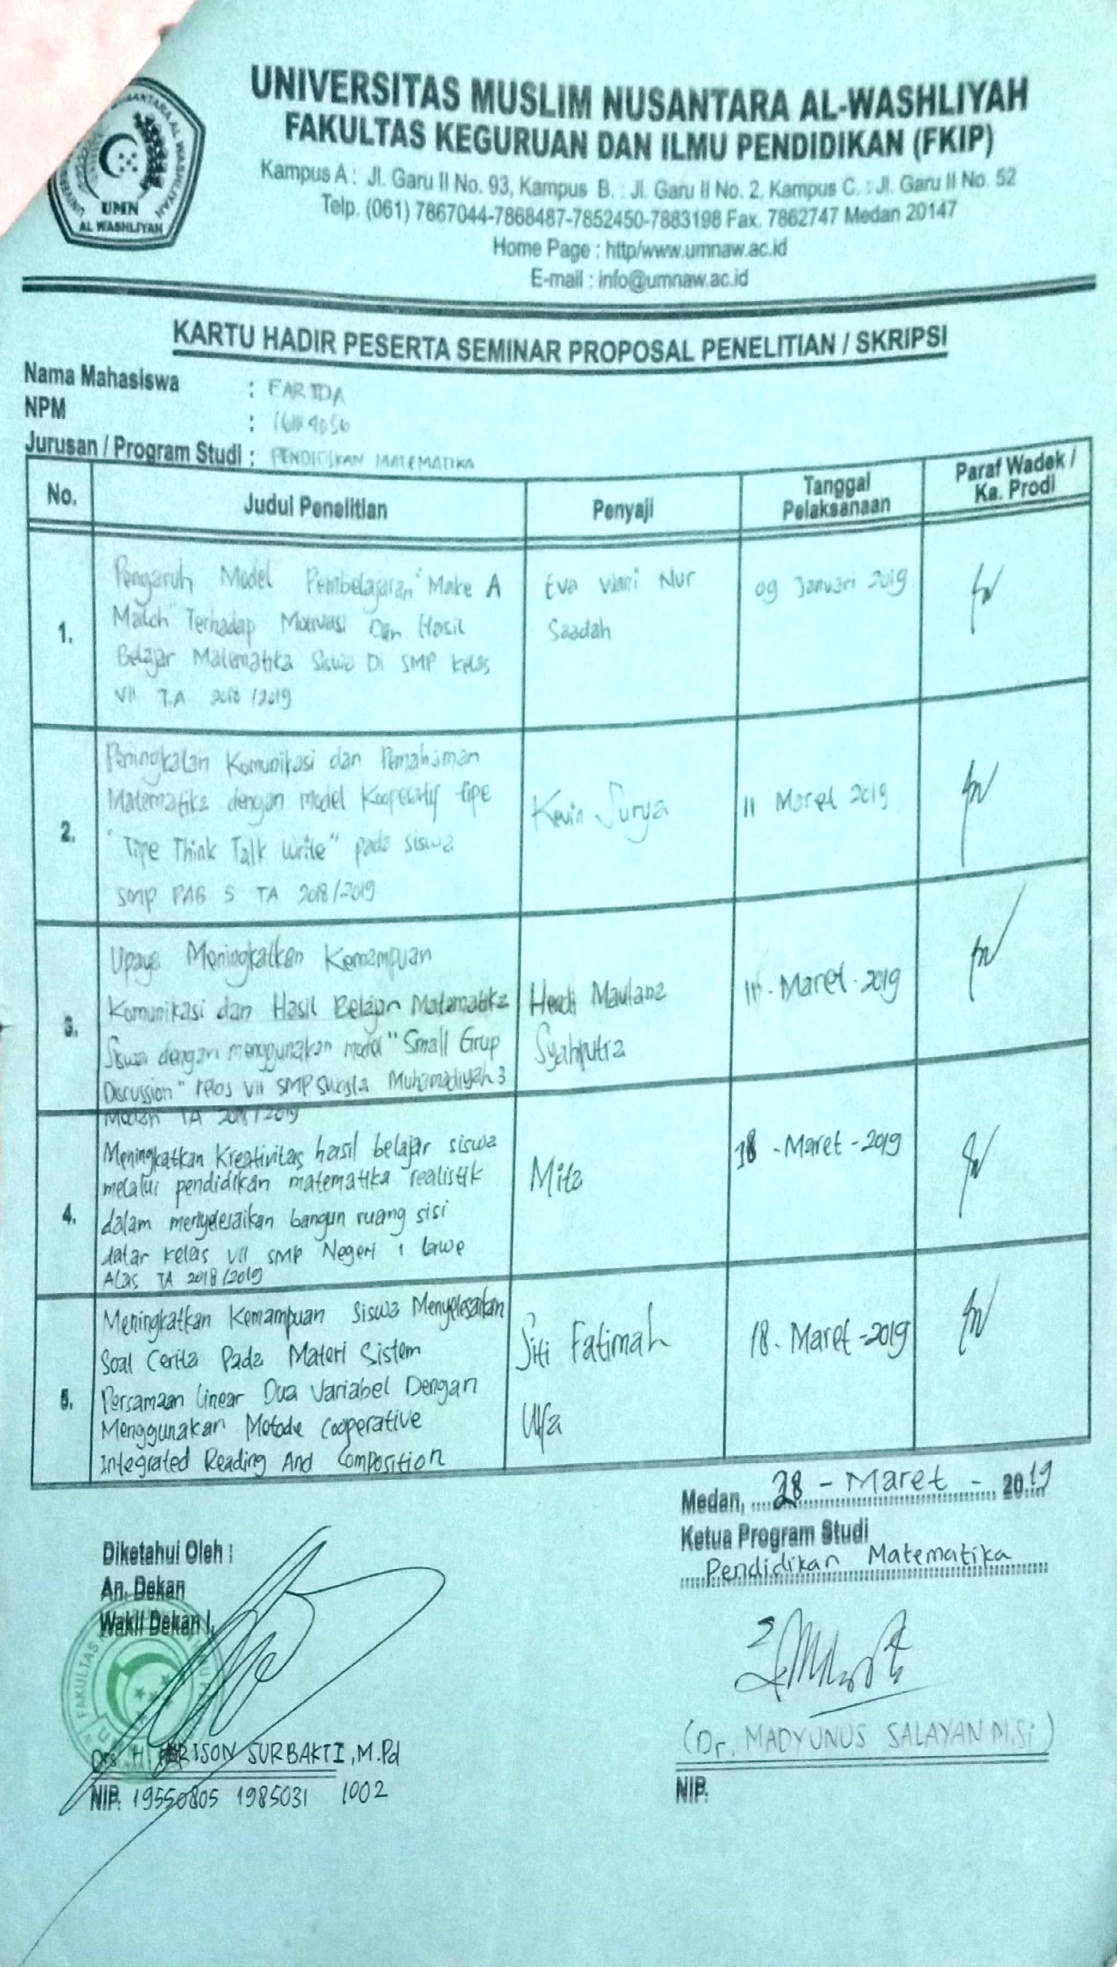 UNIVERSITAS MUSLIM NUSANTARA AL-WASHLIYAH
FAKULTAS KEGURUAN DAN ILMU PENDIDIKAN (FKIP)
Kampus A : Jl. Garu II No. 93, Kampus B. : Jl. Garu II No. 2, Kampus C. : Jl. Garu II No. 52
Telp. (061) 7867044-7868487-7852450-7883198 Fax. 7862747 Medan 20147
Home Page : http/www.umnaw.ac.id
E-mail : info@umnaw.ac.id
UMN
AL WASHLIYAH
KARTU HADIR PESERTA SEMINAR PROPOSAL PENELITIAN / SKRIPSI
Nama Mahasiswa : FARIDA
NPM :
Jurusan / Program Studi : PENDIDIKAN MATEMATIKA
No. Judul Penelitian Penyaji Tanggal Pelaksanaan Paraf Wadek / Ka. Prodi
1.
Pengaruh Model Pembelajaran "Make A
Match" Terhadap Motivasi Dan Hasil
Belajar Matematika Siswa Di SMP Kelas
VII T.A 2018 /2019
Eva Nur
Saadah
09 Januari 2019
2.
Peningkatan Komunikasi dan Pemahaman
Matematika dengan model Kooperatif tipe
"Tipe Think Talk Write" pada siswa
SMP PAB 5 TA 2018/2019
Kevin Surya
11 Maret 2019
3.
Upaya Meningkatkan Kemampuan
Komunikasi dan Hasil Belajar Matematika
Siswa dengan menggunakan model "Small Grup
Discussion" kelas VII SMP Muhamadiyah 3
Medan TA 2018/2019
Hendi Maulana
Syahputra
Maret - 2019
4.
Meningkatkan Kreativitas hasil belajar siswa
melalui pendidikan matematika realistik
dalam menyelesaikan bangun ruang sisi
datar kelas VII SMP Negeri 1 Lawe
Alas TA 2018/2019
Mita
18 - Maret - 2019
5.
Meningkatkan Kemampuan Siswa Menyelesaikan
Soal Cerita Pada Materi Sistem
Persamaan Linear Dua Variabel Dengan
Menggunakan Metode Cooperative
Integrated Reading And Composition
Siti Fatimah
Ulfa
18 - Maret - 2019
Medan, 28 - Maret - 2019
Ketua Program Studi
Pendidikan Matematika
Diketahui Oleh :
An. Dekan
Wakil Dekan I,
FAKULTAS
Drs. H. SURBAKTI, M.Pd
NIP. 19550805 1985031 1002
(Dr. MADYUNUS SALAYAN M.Si)
NIP.